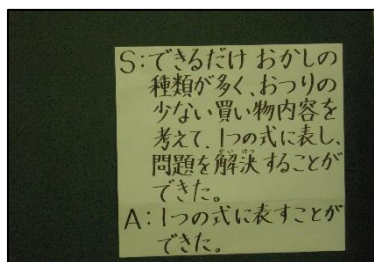 S:できるだけ おかしの
種類が多く、おつりの
少ない買い物内容を
考えて、1つの式に表し、
問題を解決することが
できた。
A:1つの式に表すことが
できた。